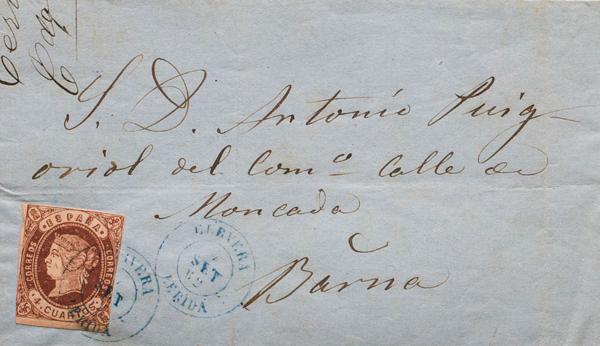 S. D. Antonio Puig-
oriol del Com.º Calle de
Moncada
Barna
CERVERA
SET
62
LERIDA
ESPAÑA
CORREOS
CORREOS
4 CUARTOS
CERVERA
SET
LERIDA